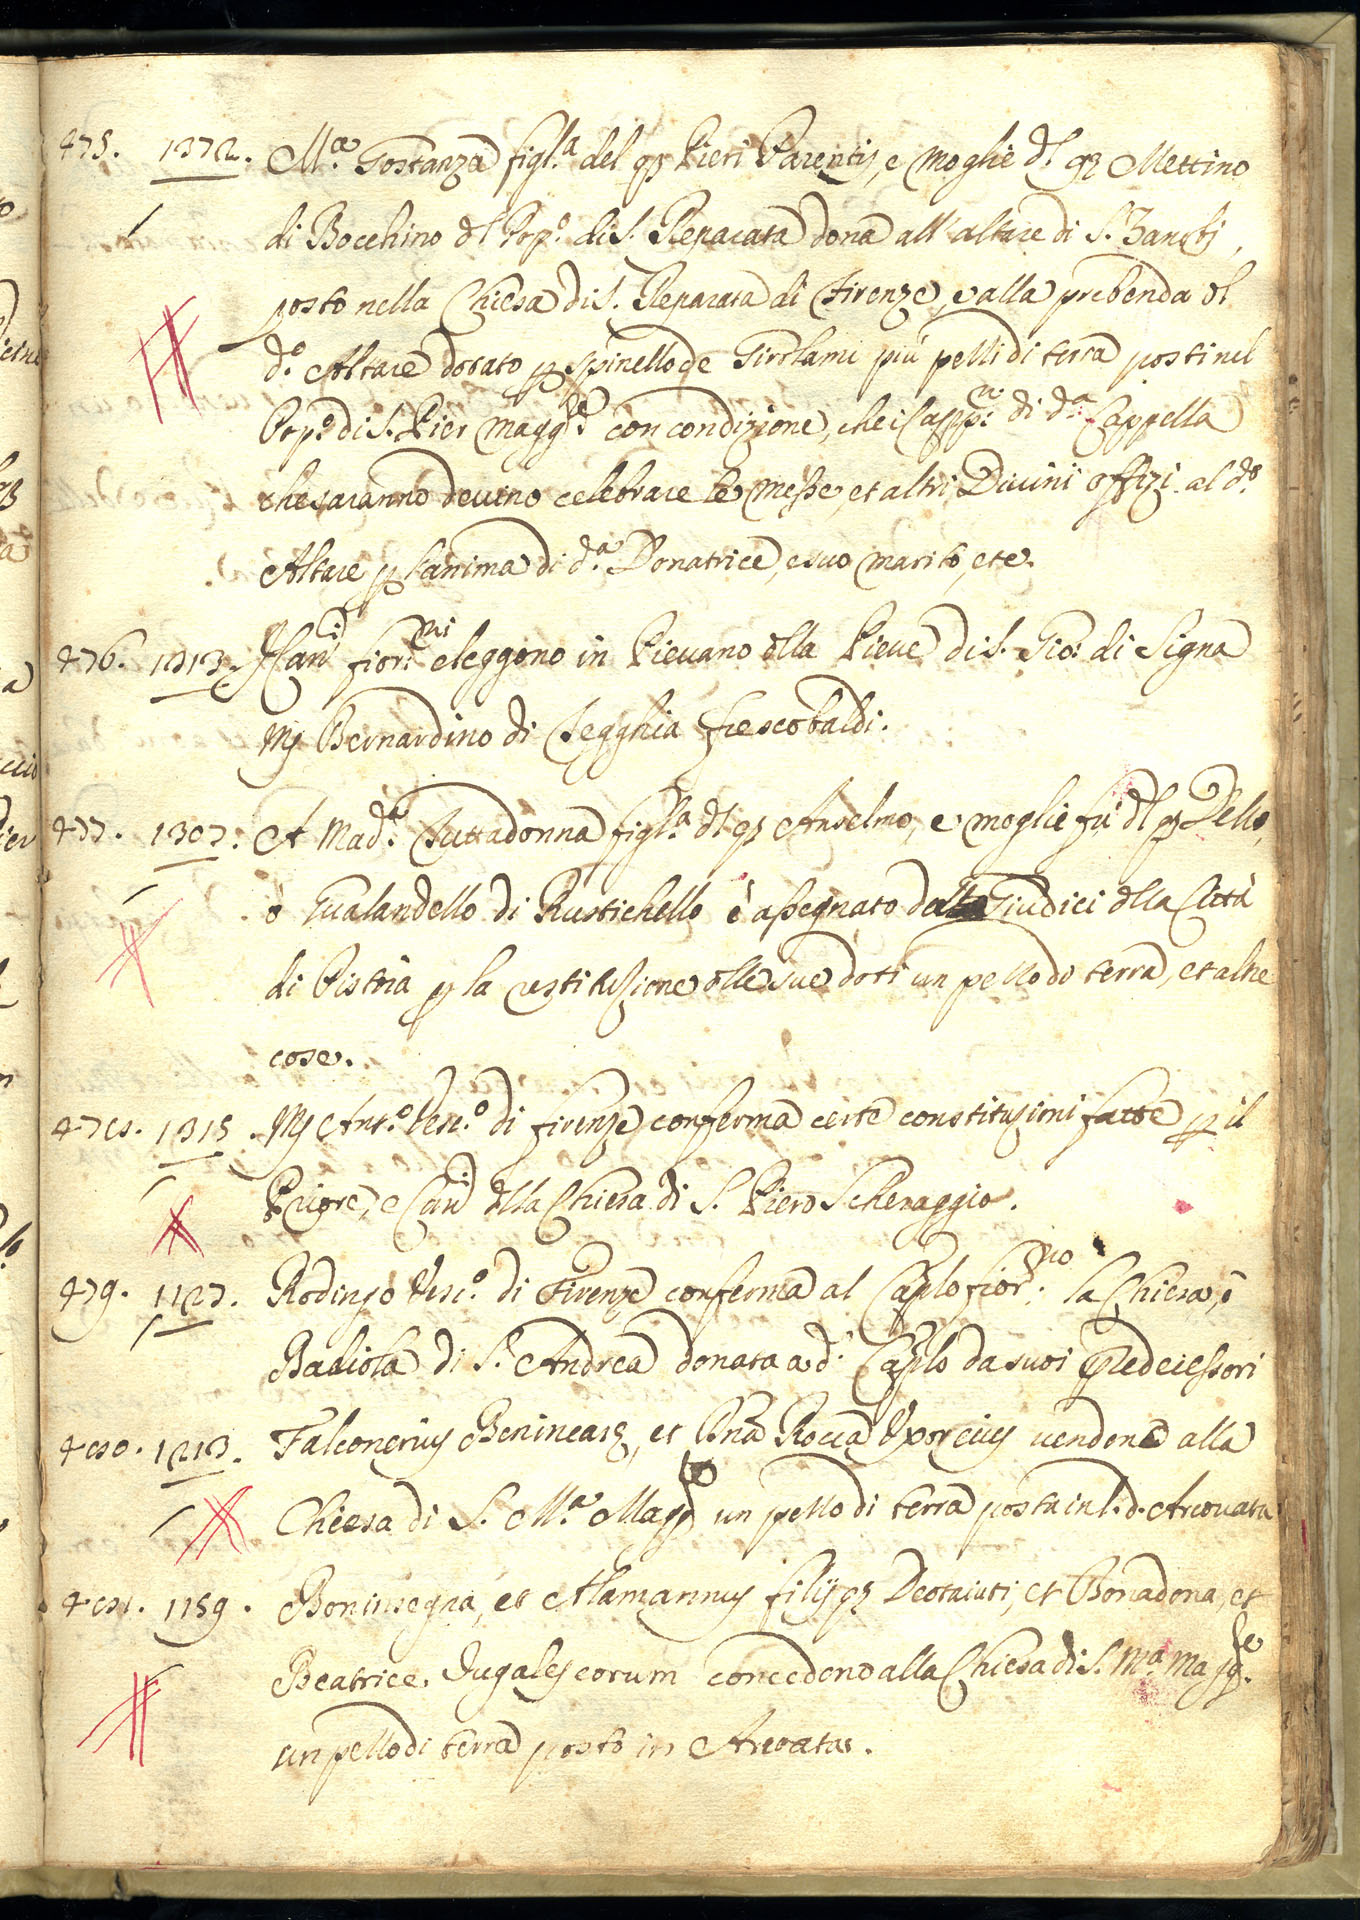 475. 1372. M.ª Gostanza figl.ª del qz Pieri Parentis, e moglie dl qz Mettino
di Bocchino dl Pop.º di S. Reparata dona all'altare di S. Zanobj,
posto nella Chiesa di S. Reparata di Firenze, e alla prebenda dl
d.º Altare dotato p Spinello de Girolami più pezzi di terra posti nel
Pop.º di S. Pier Magg.re con condizione, che i Capp.ni di d.ª Cappella
che saranno devino celebrare le Messe, et altri Divini Offizj al d.º
Altare p l'anima di d.ª Donatrice, e suo marito, etc.
476. 1313. I Can.ci fior.ni eleggono in Pievano dlla Pieve di S. Gio: di Signa
Mj Bernardino di Tegghia frescobaldi.
477. 1307. A Mad.ª Tuttadonna figl.ª dl qz Anselmo, e moglie fu dl qz Dello,
o Gualandello di Rustichello è assegnato da Giudici dlla Città
di Pistoia p la restituzione dlle sue doti un pezzo do terra, et altre
cose.
478. 1315. Mj Ant.º Vesc.º di firenze conferma certe constituzioni fatte p il
Priore, e Can.ci dlla Chiesa di S. Piero Scheraggio.
479. 1127. Rodingo Vesc.º di Firenze conferma al Caplo fior.no la Chiesa, ò
Badiola di S. Andrea donata a d. Caplo da suoi Predecessori
480. 1213. Falconerius Benincasę, et Dna Rocca Uxor eius vendono alla
Chiesa di S. M.ª Magg un pezzo di terra posta in l. d. Arcovata
481. 1159. Boninsegna, et Alamannus filij qz Deotaiuti, et Bonadona, et
Beatrice, Iugales eorum concedono alla Chiesa di S. M.ª Magg.re
un pezzo di terra posto in Arcoata.